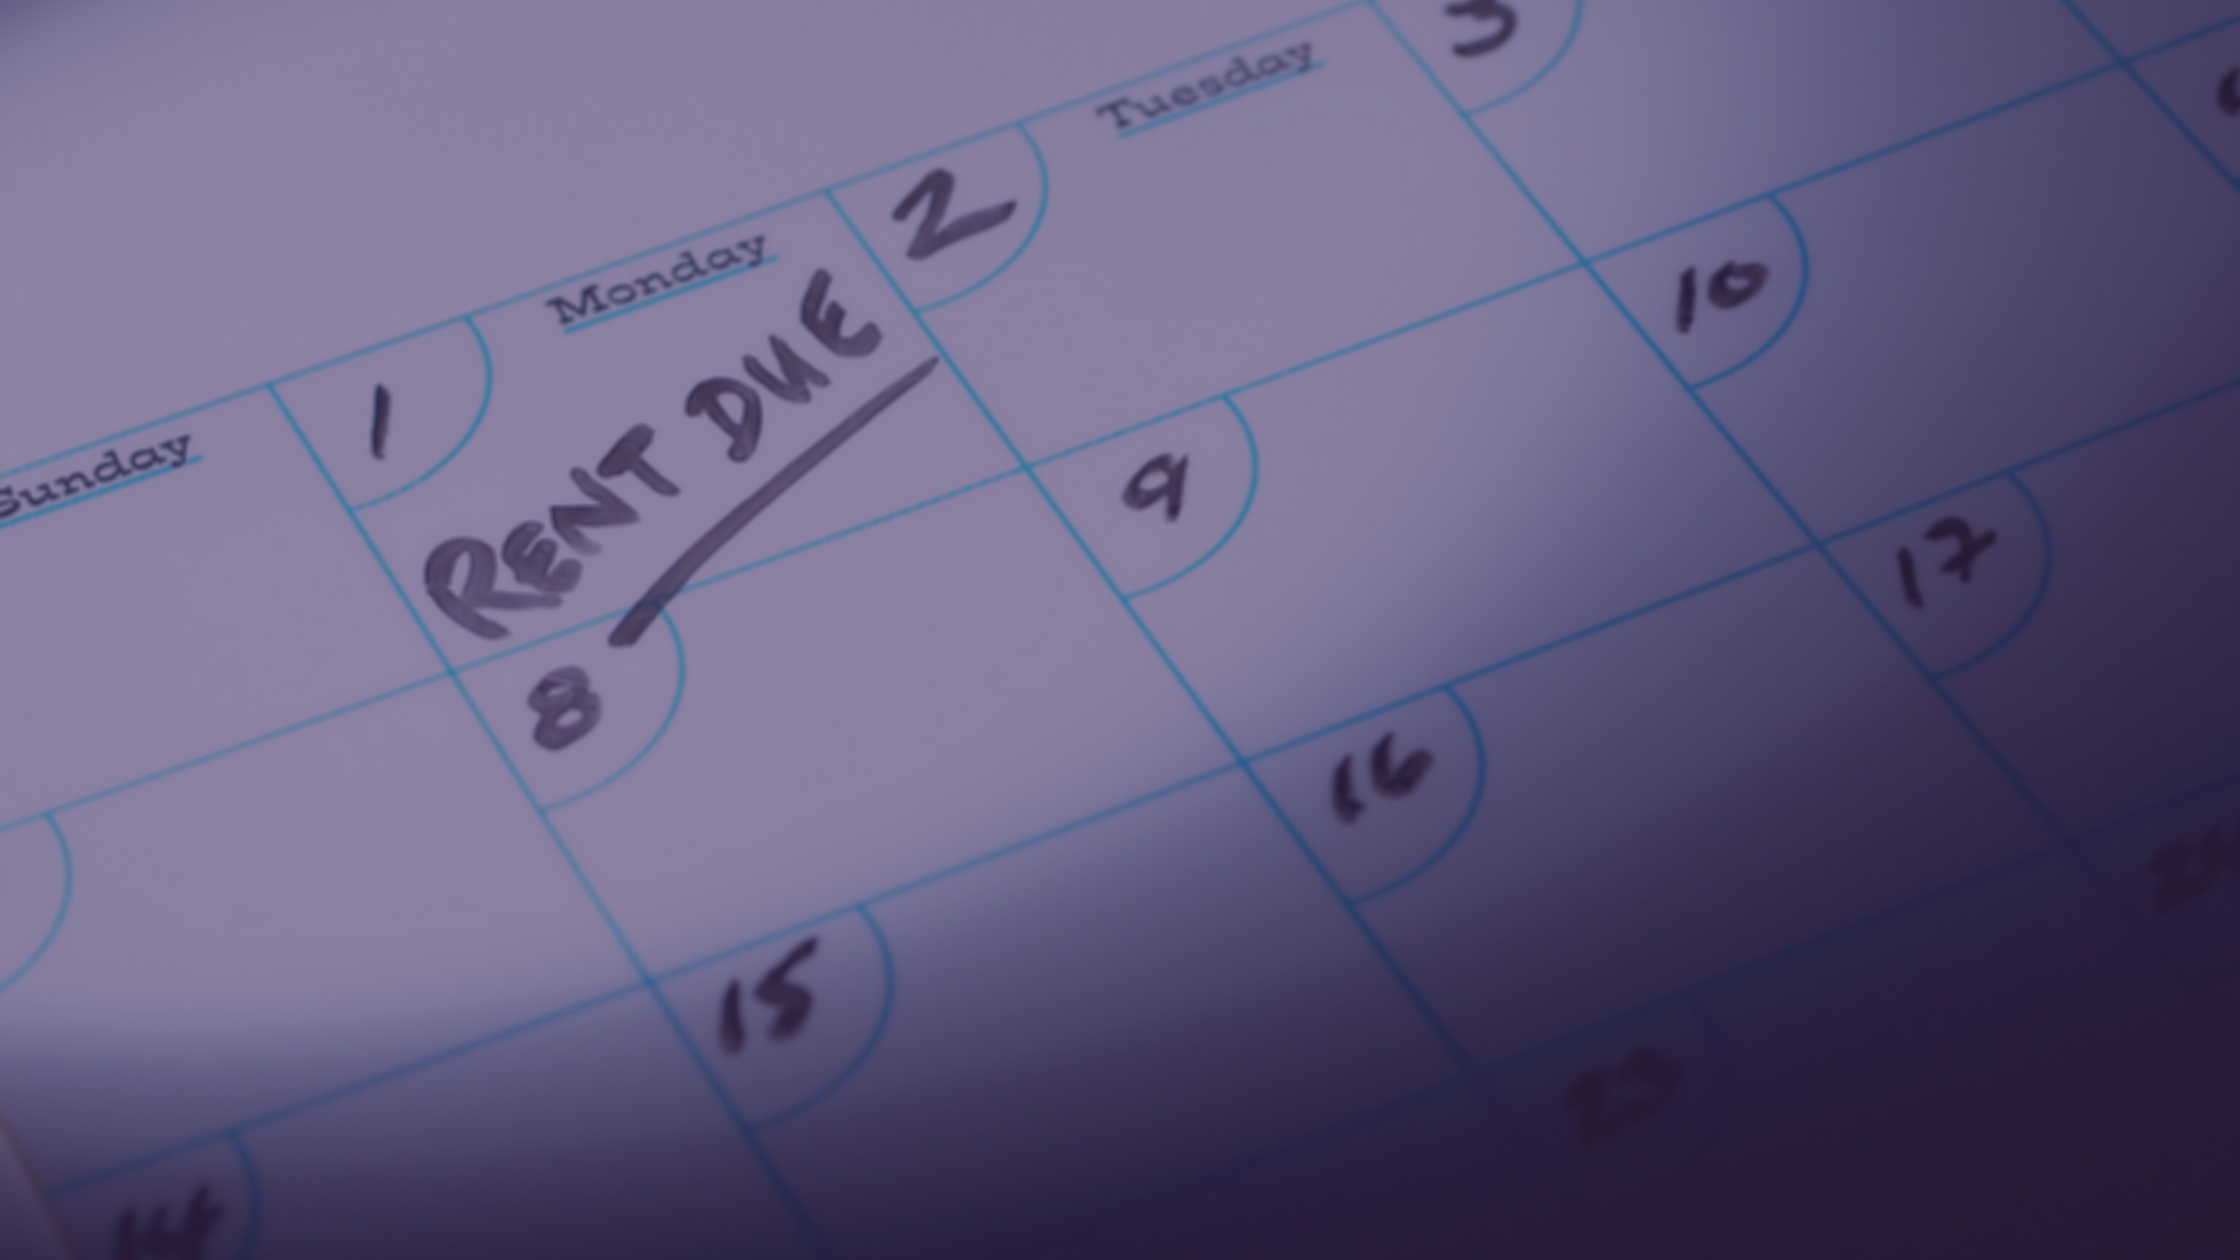 Sunday
Monday
Tuesday
1
2
3
RENT DUE
8
9
10
14
15
16
17
23